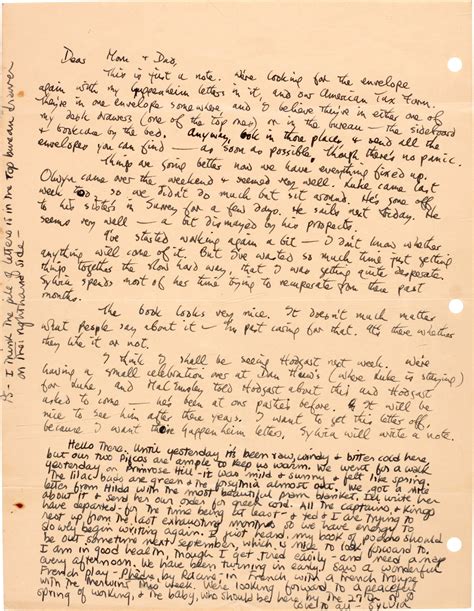 Dear Mom & Dad,
This is just a note. We're looking for the envelope
again with my Guggenheim letters in it, and our American Tax Form.
They're in one envelope somewhere and I believe they're in either one of
my desk drawers (one of the top ones) or in the bureau — the sideboard
& bookcase by the bed. Anyway, look in those places, & send all the
envelopes you can find — as soon as possible, though there's no panic.
Things are going better now we have everything fixed up.
Olwyn came over the weekend & seemed very well. Luke came last
week too, so we didn't do much but sit around. He's gone off
to his sister's in Surrey for a few days. He sails next Friday. He
seems very well — a bit dismayed by his prospects.
I've started working again a bit — I don't know whether
anything will come of it. But I've wasted so much time just getting
things together the slow hard way, that I was getting quite desperate.
Sylvia spends most of her time trying to recuperate from these past
months.
The book looks very nice. It doesn't much matter
what people say about it — I'm past caring for that. It's there whether
they like it or not.
I think I shall be seeing Hodgart next week. We're
having a small celebration over at Dan Huws's (where Luke is staying)
for Luke, and Hal told Hodgart about this and Hodgart
asked to come — he's been at our parties before. It will be
nice to see him after these years. I want to get this letter off,
because I want those Guggenheim letters, Sylvia will write a note.
Hello There. Until yesterday it's been raw, windy & bitter cold here
but our two Pifcos are ample to keep us warm. We went for a walk
yesterday on Primrose Hill — it was mild & sunny & felt like spring.
The lilac buds are green & the forsythia almost out. We got a nice
letter from Hilda with the most beautiful pram blanket. I'll write her
about it & send our order for green coal. All the captains & kings
have departed — for the time being at least — & Ted & I are trying to
rest up from the last exhausting months so we have energy to
slowly begin writing again. I just heard my book of poems should
be out sometime next September, which is nice to look forward to.
I am in good health, though I get tired easily — and need a nap
every afternoon. We have been turning in early! Saw a wonderful
French play — Phedre, by Racine — in French, with a french troupe
with the Merwins this week. Were looking forward to a peaceful
spring of working, & the baby, who should be here by the 27th of
love to all — Sylvia
PS - I think the pile of letters is in the top bureau drawer
on the righthand side —